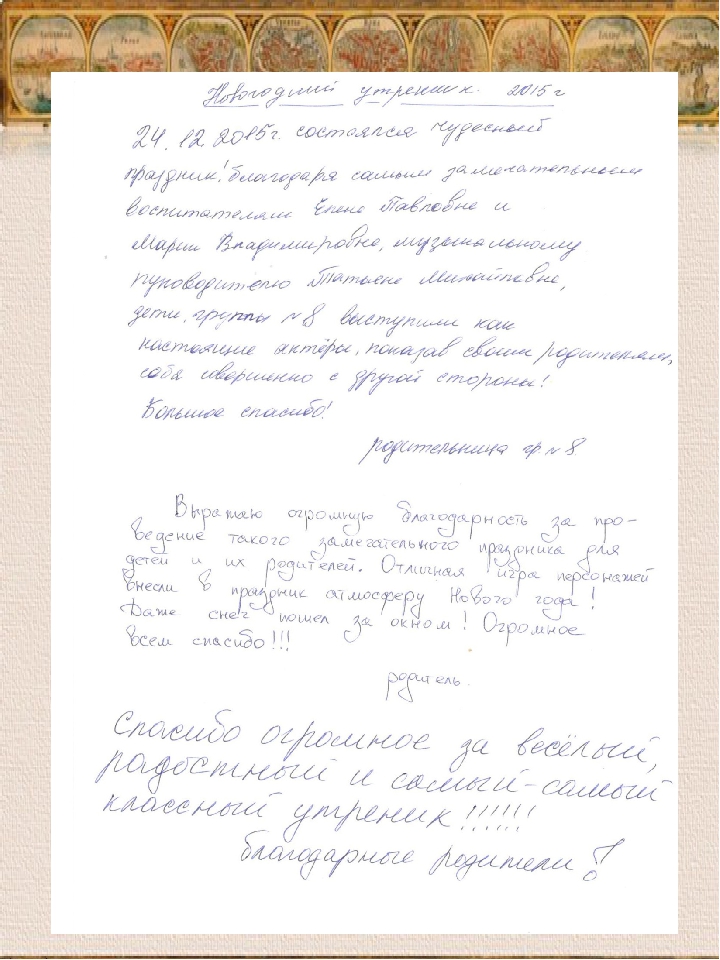 Новогодний утренник. 2015г
24.12.2015г. состоялся чудесный
праздник! Благодаря самым замечательным
воспитателям Елене Павловне и
Марии Владимировне, музыкальному
руководителю Татьяне Михайловне,
дети группы №8 выступили как
настоящие актёры, показав своим родителям,
себя совершенно с другой стороны!
Большое спасибо!
родительница гр. №8
Выражаю огромную благодарность за про-
ведение такого замечательного праздника для
детей и их родителей. Отличная игра персонажей
внесли в праздник атмосферу Нового года!
Даже снег пошел за окном! Огромное
всем спасибо!!!
родитель.
Спасибо огромное за весёлый,
радостный и самый-самый
классный утреник!!!!!!
благодарные родители!